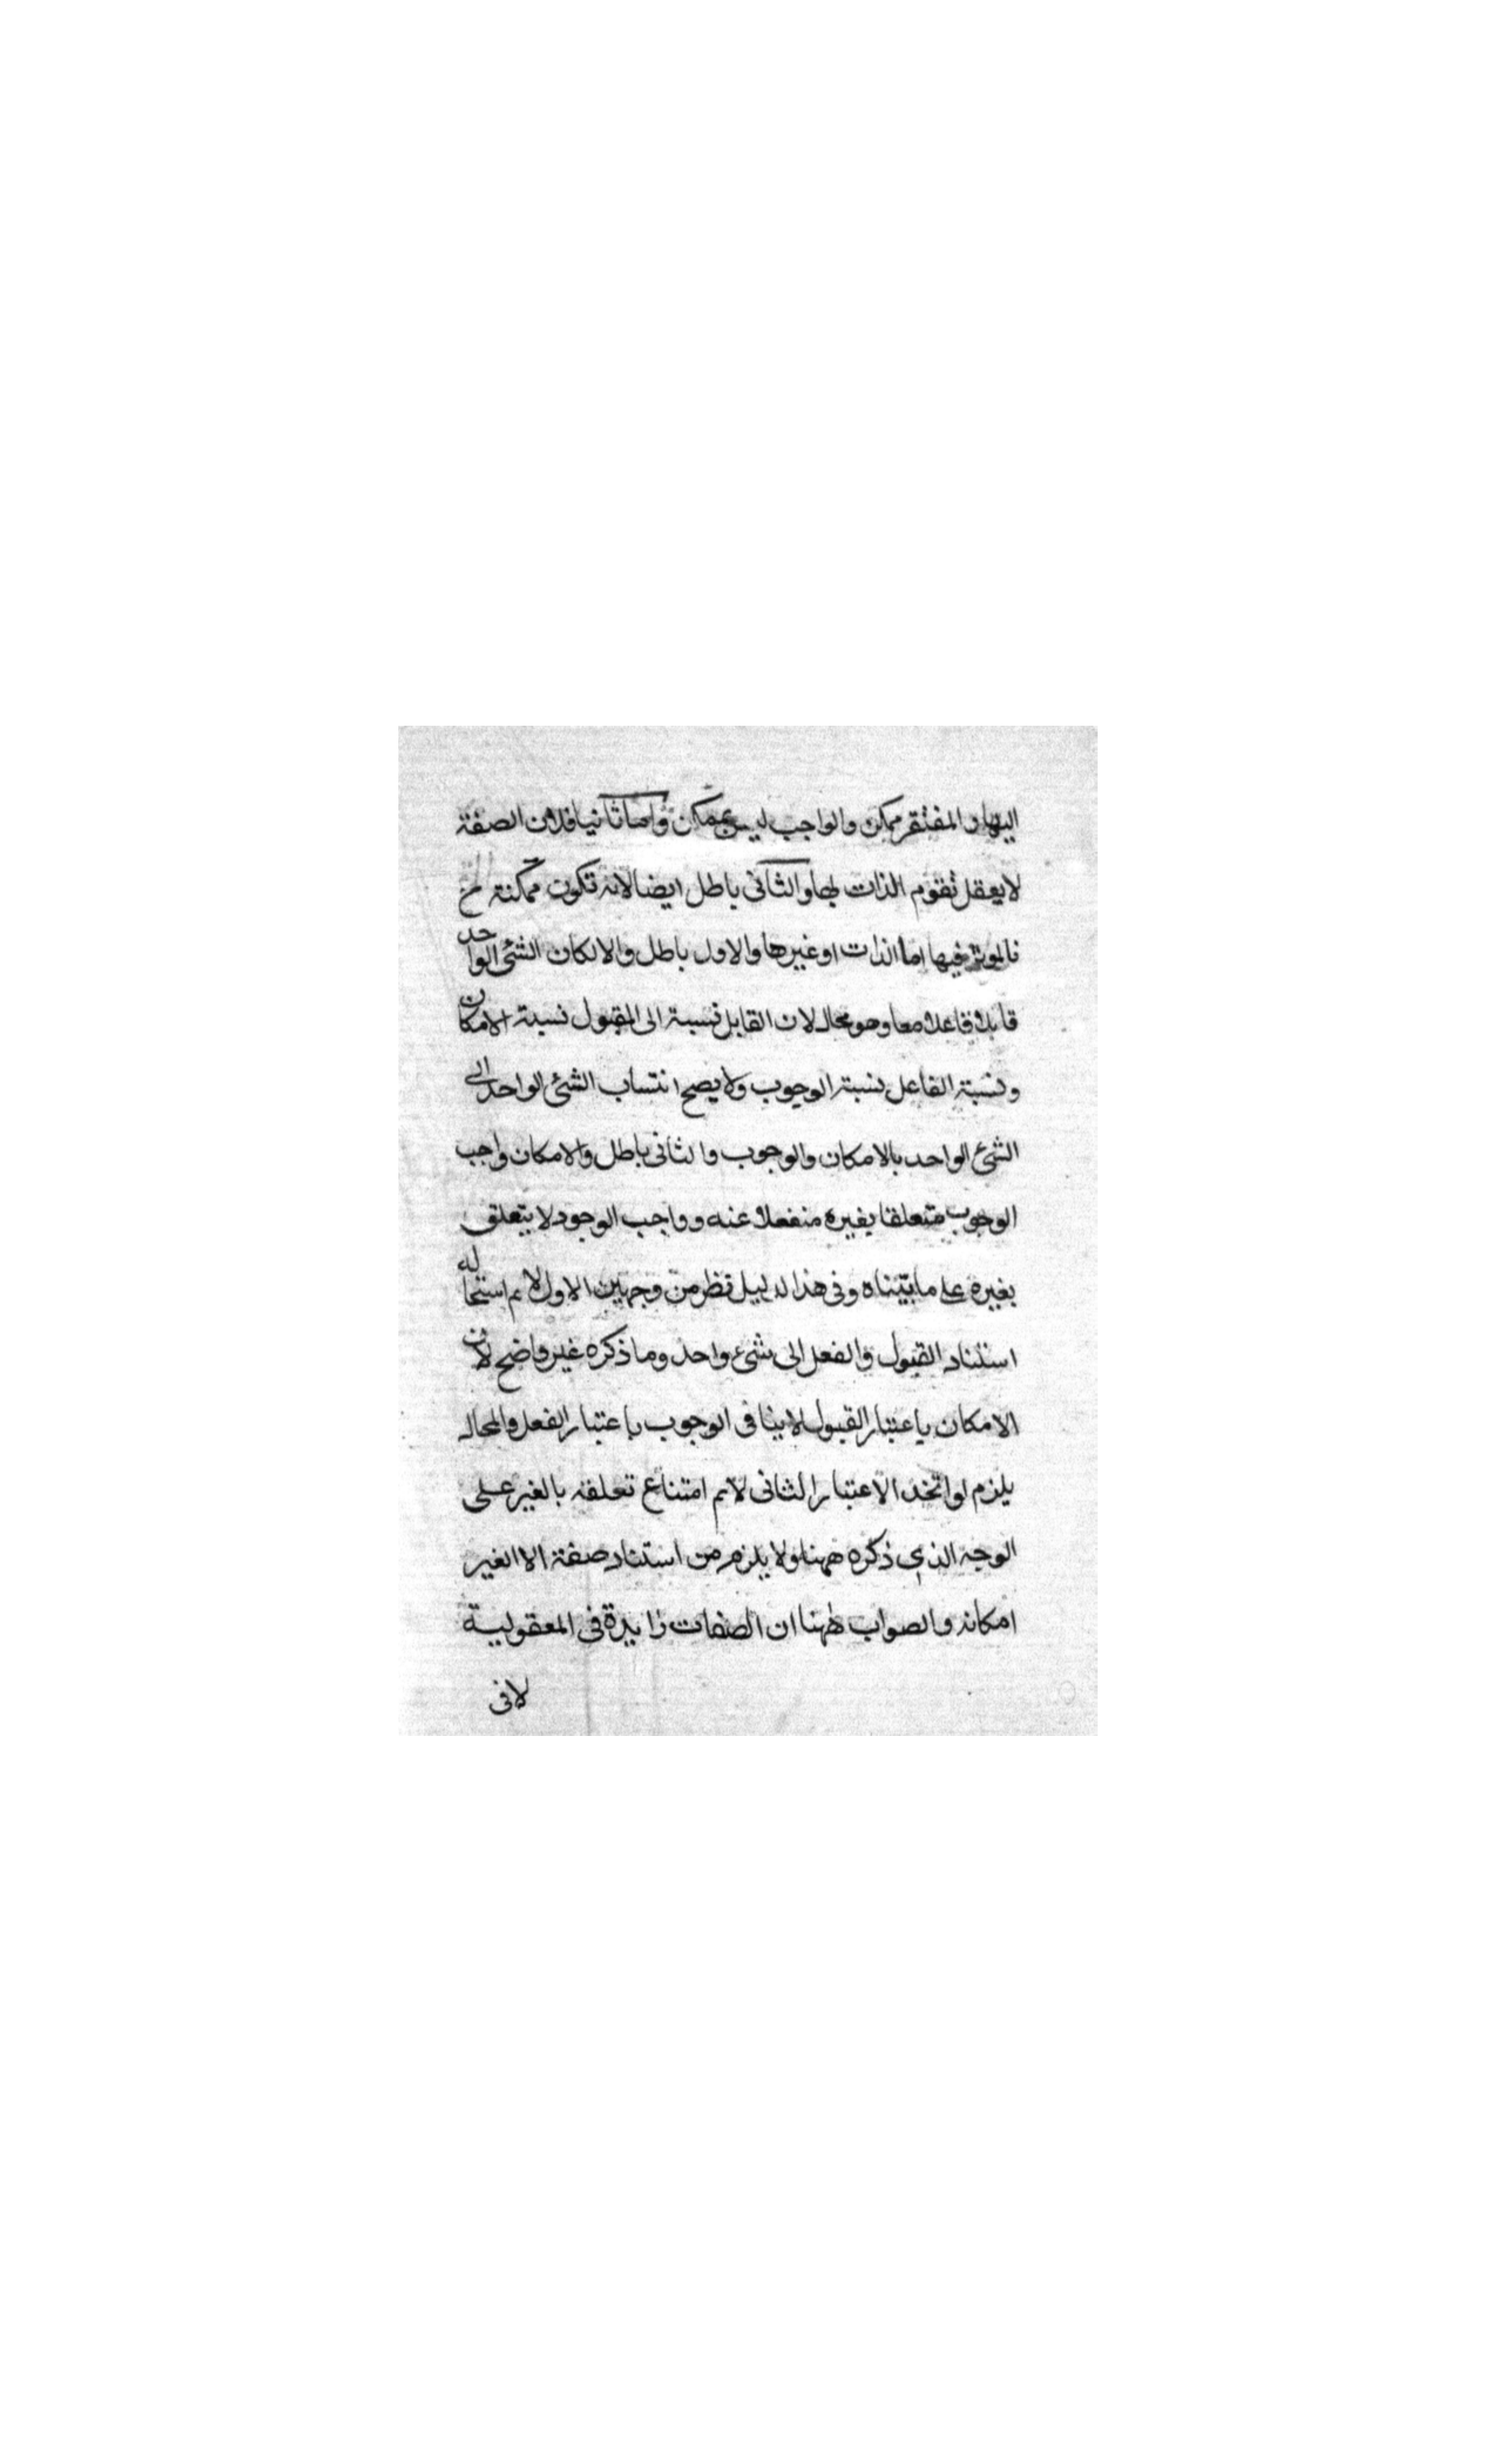 اليها والمفتقر ممكن والواجب ليس بممكن واما ثانيا فلان الصفة
لا يعقل تقوم الذات بها والثانى باطل ايضا لانه تكون ممكنة ح
فالموثر فيها اما الذات او غيرها والاول باطل والا لكان الشئ الواحد
قابلا فاعلا معا وهو محال لان القابل نسبة الى المقبول نسبة الامكان
ونسبة الفاعل نسبة الوجوب ولا يصح انتساب الشئ الواحد الى
الشئ الواحد بالامكان والوجوب والثانى باطل والامكان واجب
الوجوب متعلقا بغيره منفعلا عنه وواجب الوجود لا يتعلق
بغيره على ما بيّناه وفى هذا الدليل نظر من وجهين الاول لا نم استحاله
استناد القبول والفعل الى شئ واحد وما ذكره غير واضح لان
الامكان باعتبار القبول لا ينافى الوجوب باعتبار الفعل والمحال
يلزم لو اتخد الاعتبار الثانى لا نم امتناع تعلقه بالغير على
الوجه الذى ذكره ههنا ولا يلزم من استناد صفة الا الغير
امكانه والصواب ههنا ان الصفات زايدة فى المعقولية
لا فى